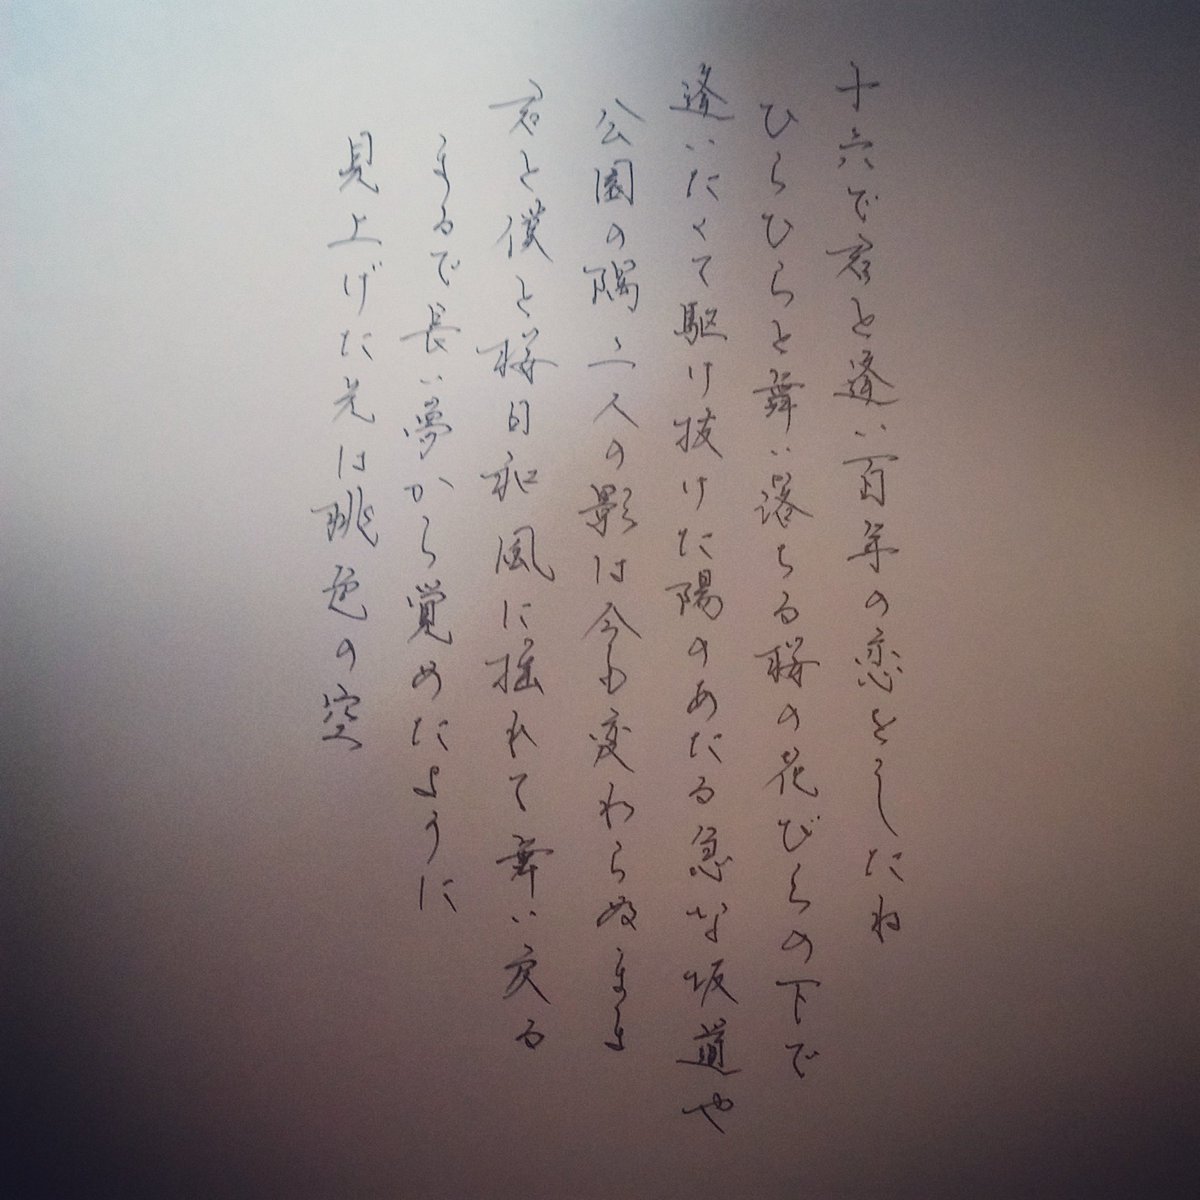 十六で君と逢い百年の恋をしたね
ひらひらと舞い落ちる桜の花びらの下で
逢いたくて駆け抜けた陽のあたる急な坂道や
公園の隅二人の影は今も変わらぬまま
君と僕と桜日和風に揺れて舞い戻る
まるで長い夢から覚めたように
見上げた先は桃色の空